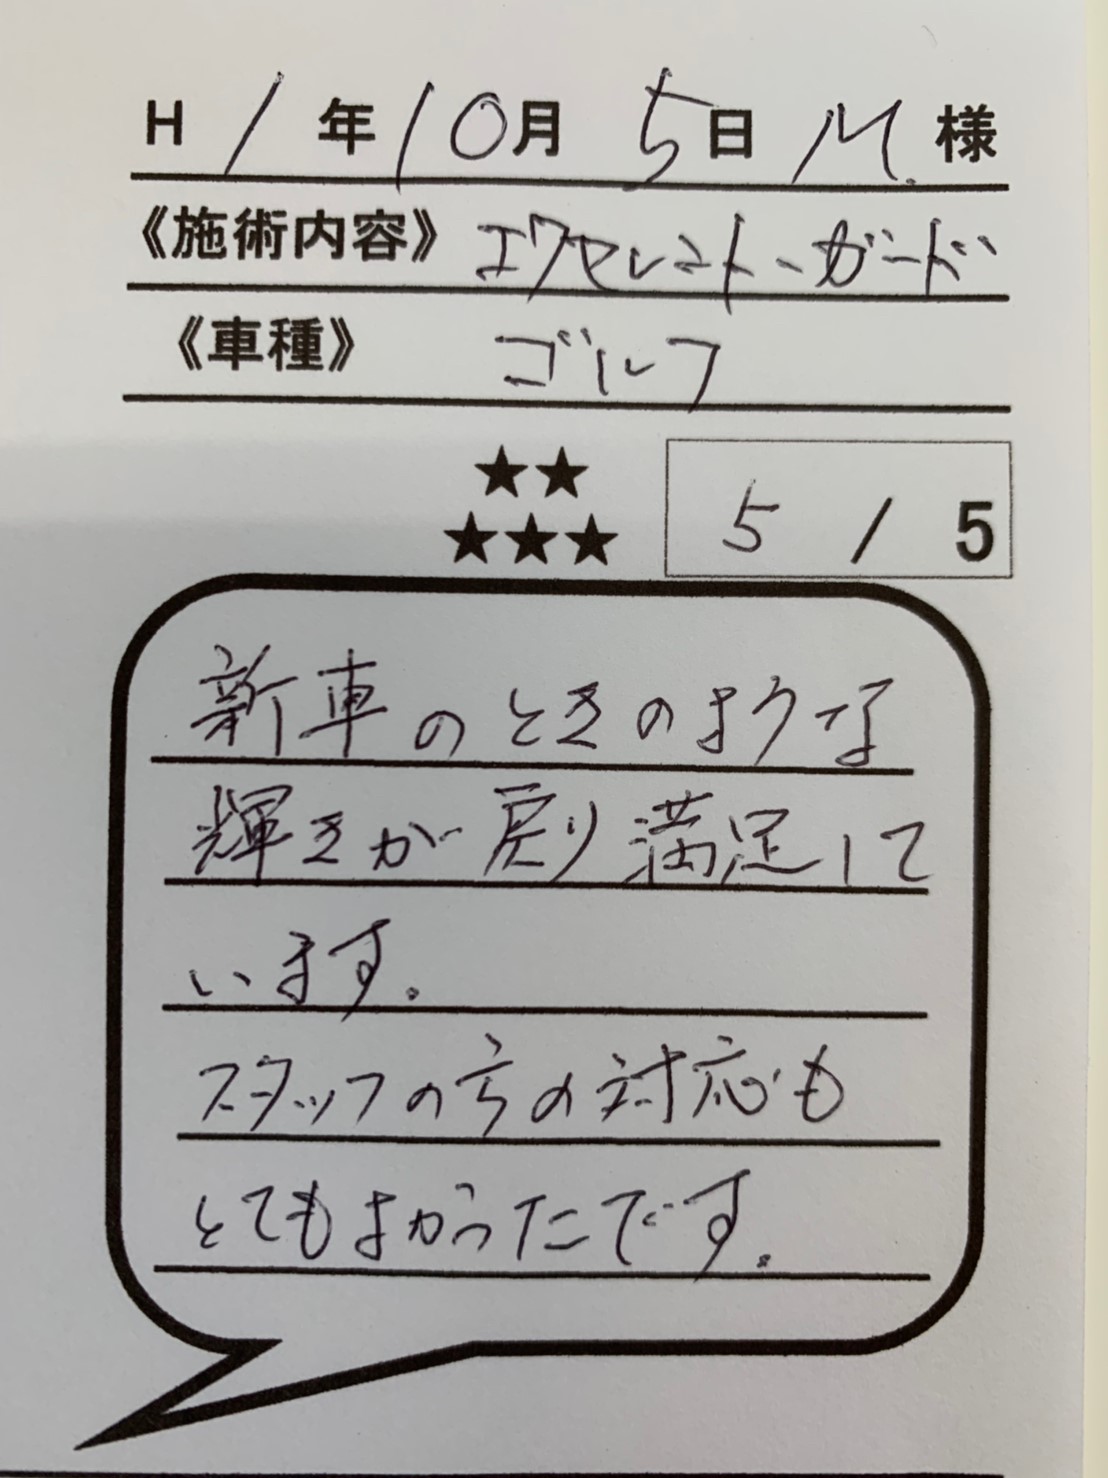 H 1 年 10 月 5 日 M. 様
《施術内容》 エクセレント・ガード
《車種》 ゴルフ
★★
★★★ 5 / 5
新車のときのような
輝きが戻り満足して
います.
スタッフの方の対応も
とてもよかったです.